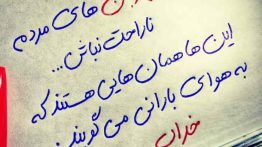 های مردم
ناراحت نباش...
این ها همان هایی هستند که
به هوای بارانی می گویند:
خراب